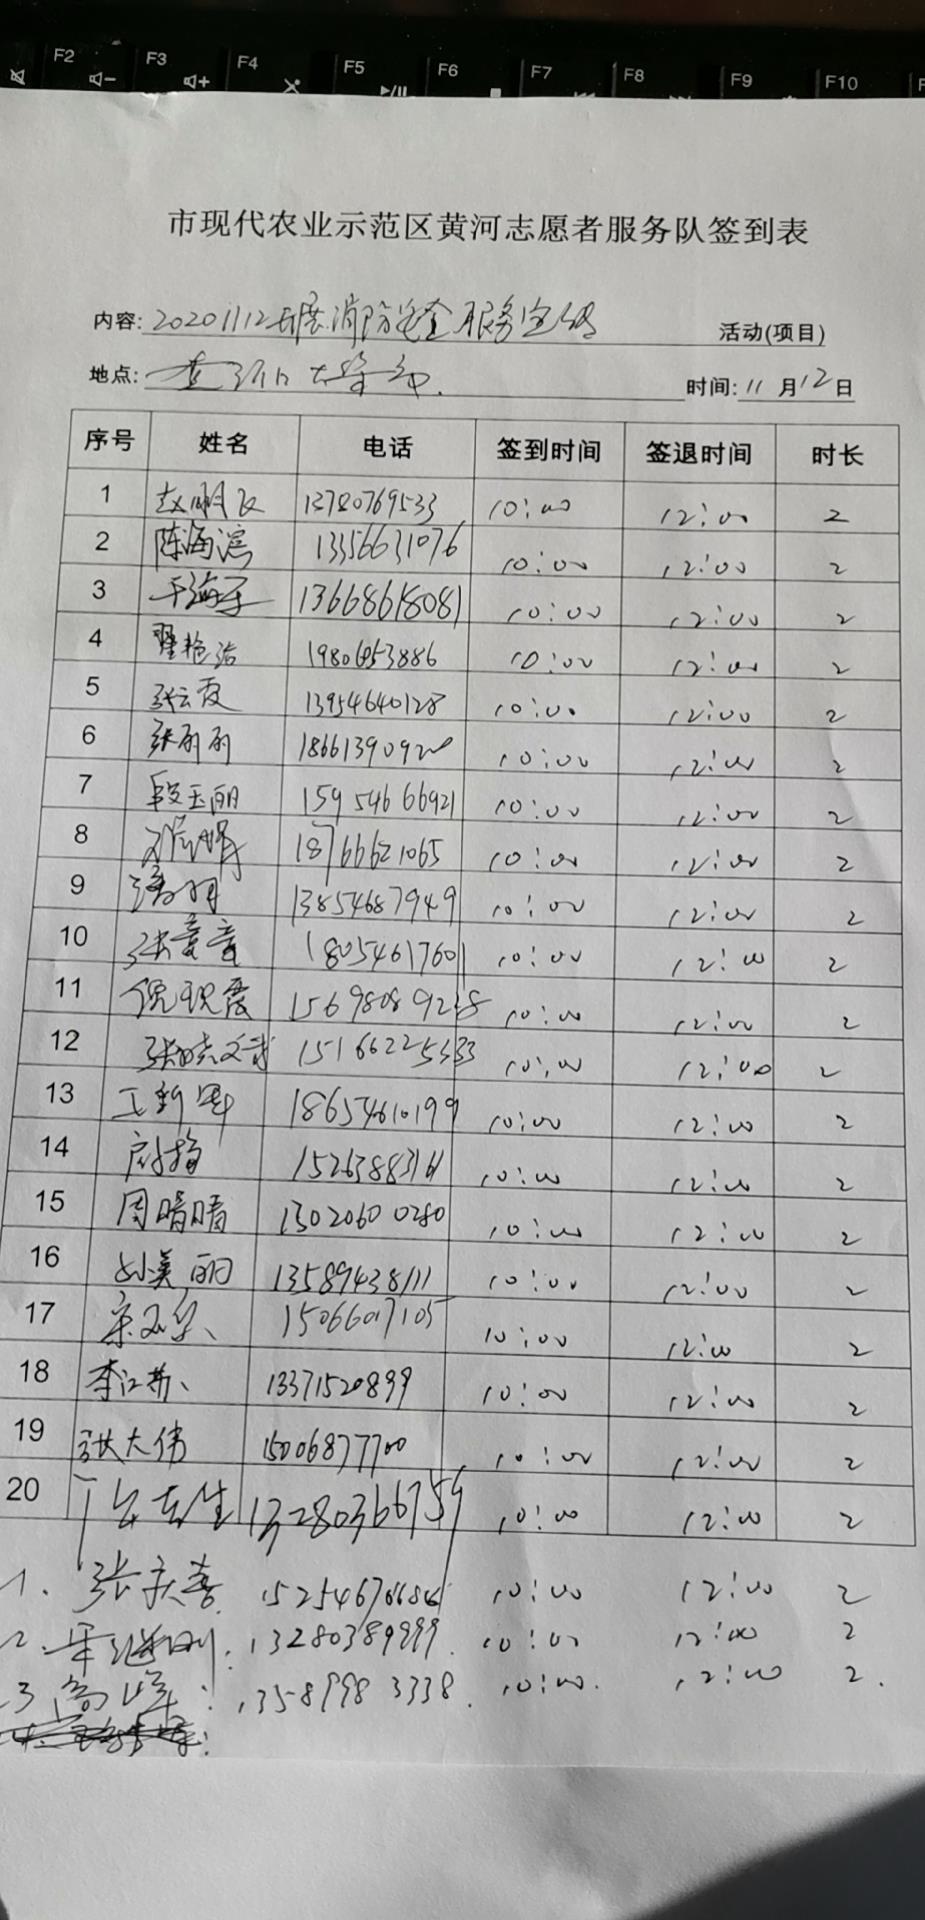 F2 F3 F4 F5 F6 F7 F8 F9 F10
市现代农业示范区黄河志愿者服务队签到表
内容: 20201112开展消防安全服务宣传 活动(项目)
地点: 时间: 11 月 12 日
序号 姓名 电话 签到时间 签退时间 时长
1 赵 10:00 12:00 2
2 陈海滨 13356631076 10:00 12:00 2
3 13668618081 10:00 12:00 2
4 10:00 12:00 2
5 张云霞 13954640128 10:00 12:00 2
6 张丽丽 10:00 12:00 2
7 段玉丽 15954666921 10:00 12:00 2
8 18766621065 10:00 12:00 2
9 13854687949 10:00 12:00 2
10 张童童 18054617601 10:00 12:00 2
11 倪现霞 10:00 12:00 2
12 15166225333 10:00 12:00 2
13 王新军 18654610199 10:00 12:00 2
14 15263883161 10:00 12:00 2
15 周晴晴 13020600280 10:00 12:00 2
16 孙美丽 13589438111 10:00 12:00 2
17 15066017105 10:00 12:00 2
18 李江苏 13371520899 10:00 12:00 2
19 张大伟 15006877700 10:00 12:00 2
20 13280366759 10:00 12:00 2
1. 张庆喜 10:00 12:00 2
2. 13280389999. 10:00 12:00 2
3 高峰: 13589983338. 10:00. 12:00 2.